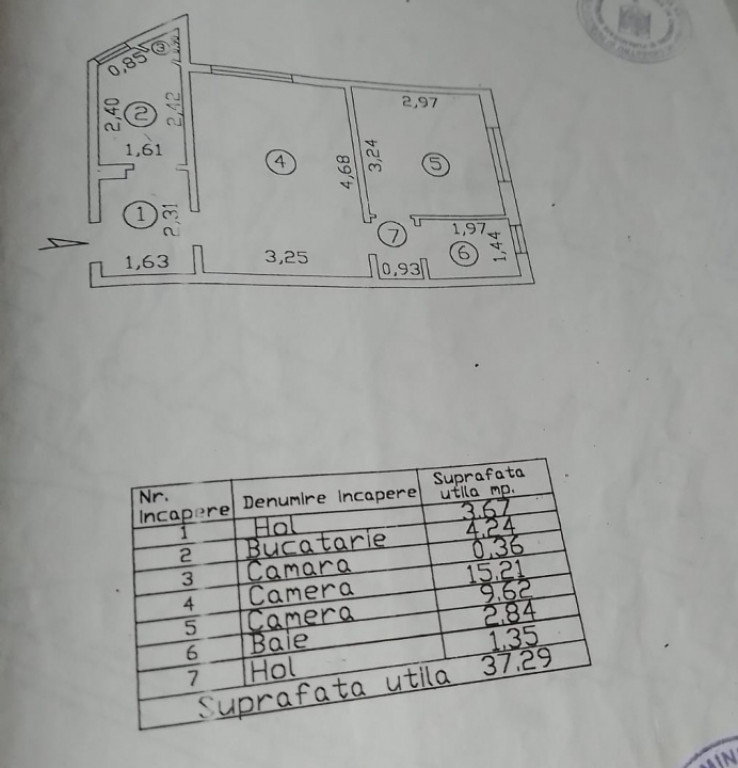 0,85
3
2,40
2
2,42
1,61
1
2,31
1,63
4
4,68
3,25
2,97
3,24
5
7
1,97
6
1,44
0,93
Nr. Incapere Denumire incapere Suprafata utila mp.
1 Hol 3.67
2 Bucatarie 4.24
3 Camara 0.36
4 Camera 15.21
5 Camera 9.62
6 Baie 2.84
7 Hol 1.35
Suprafata utila 37.29
MIN